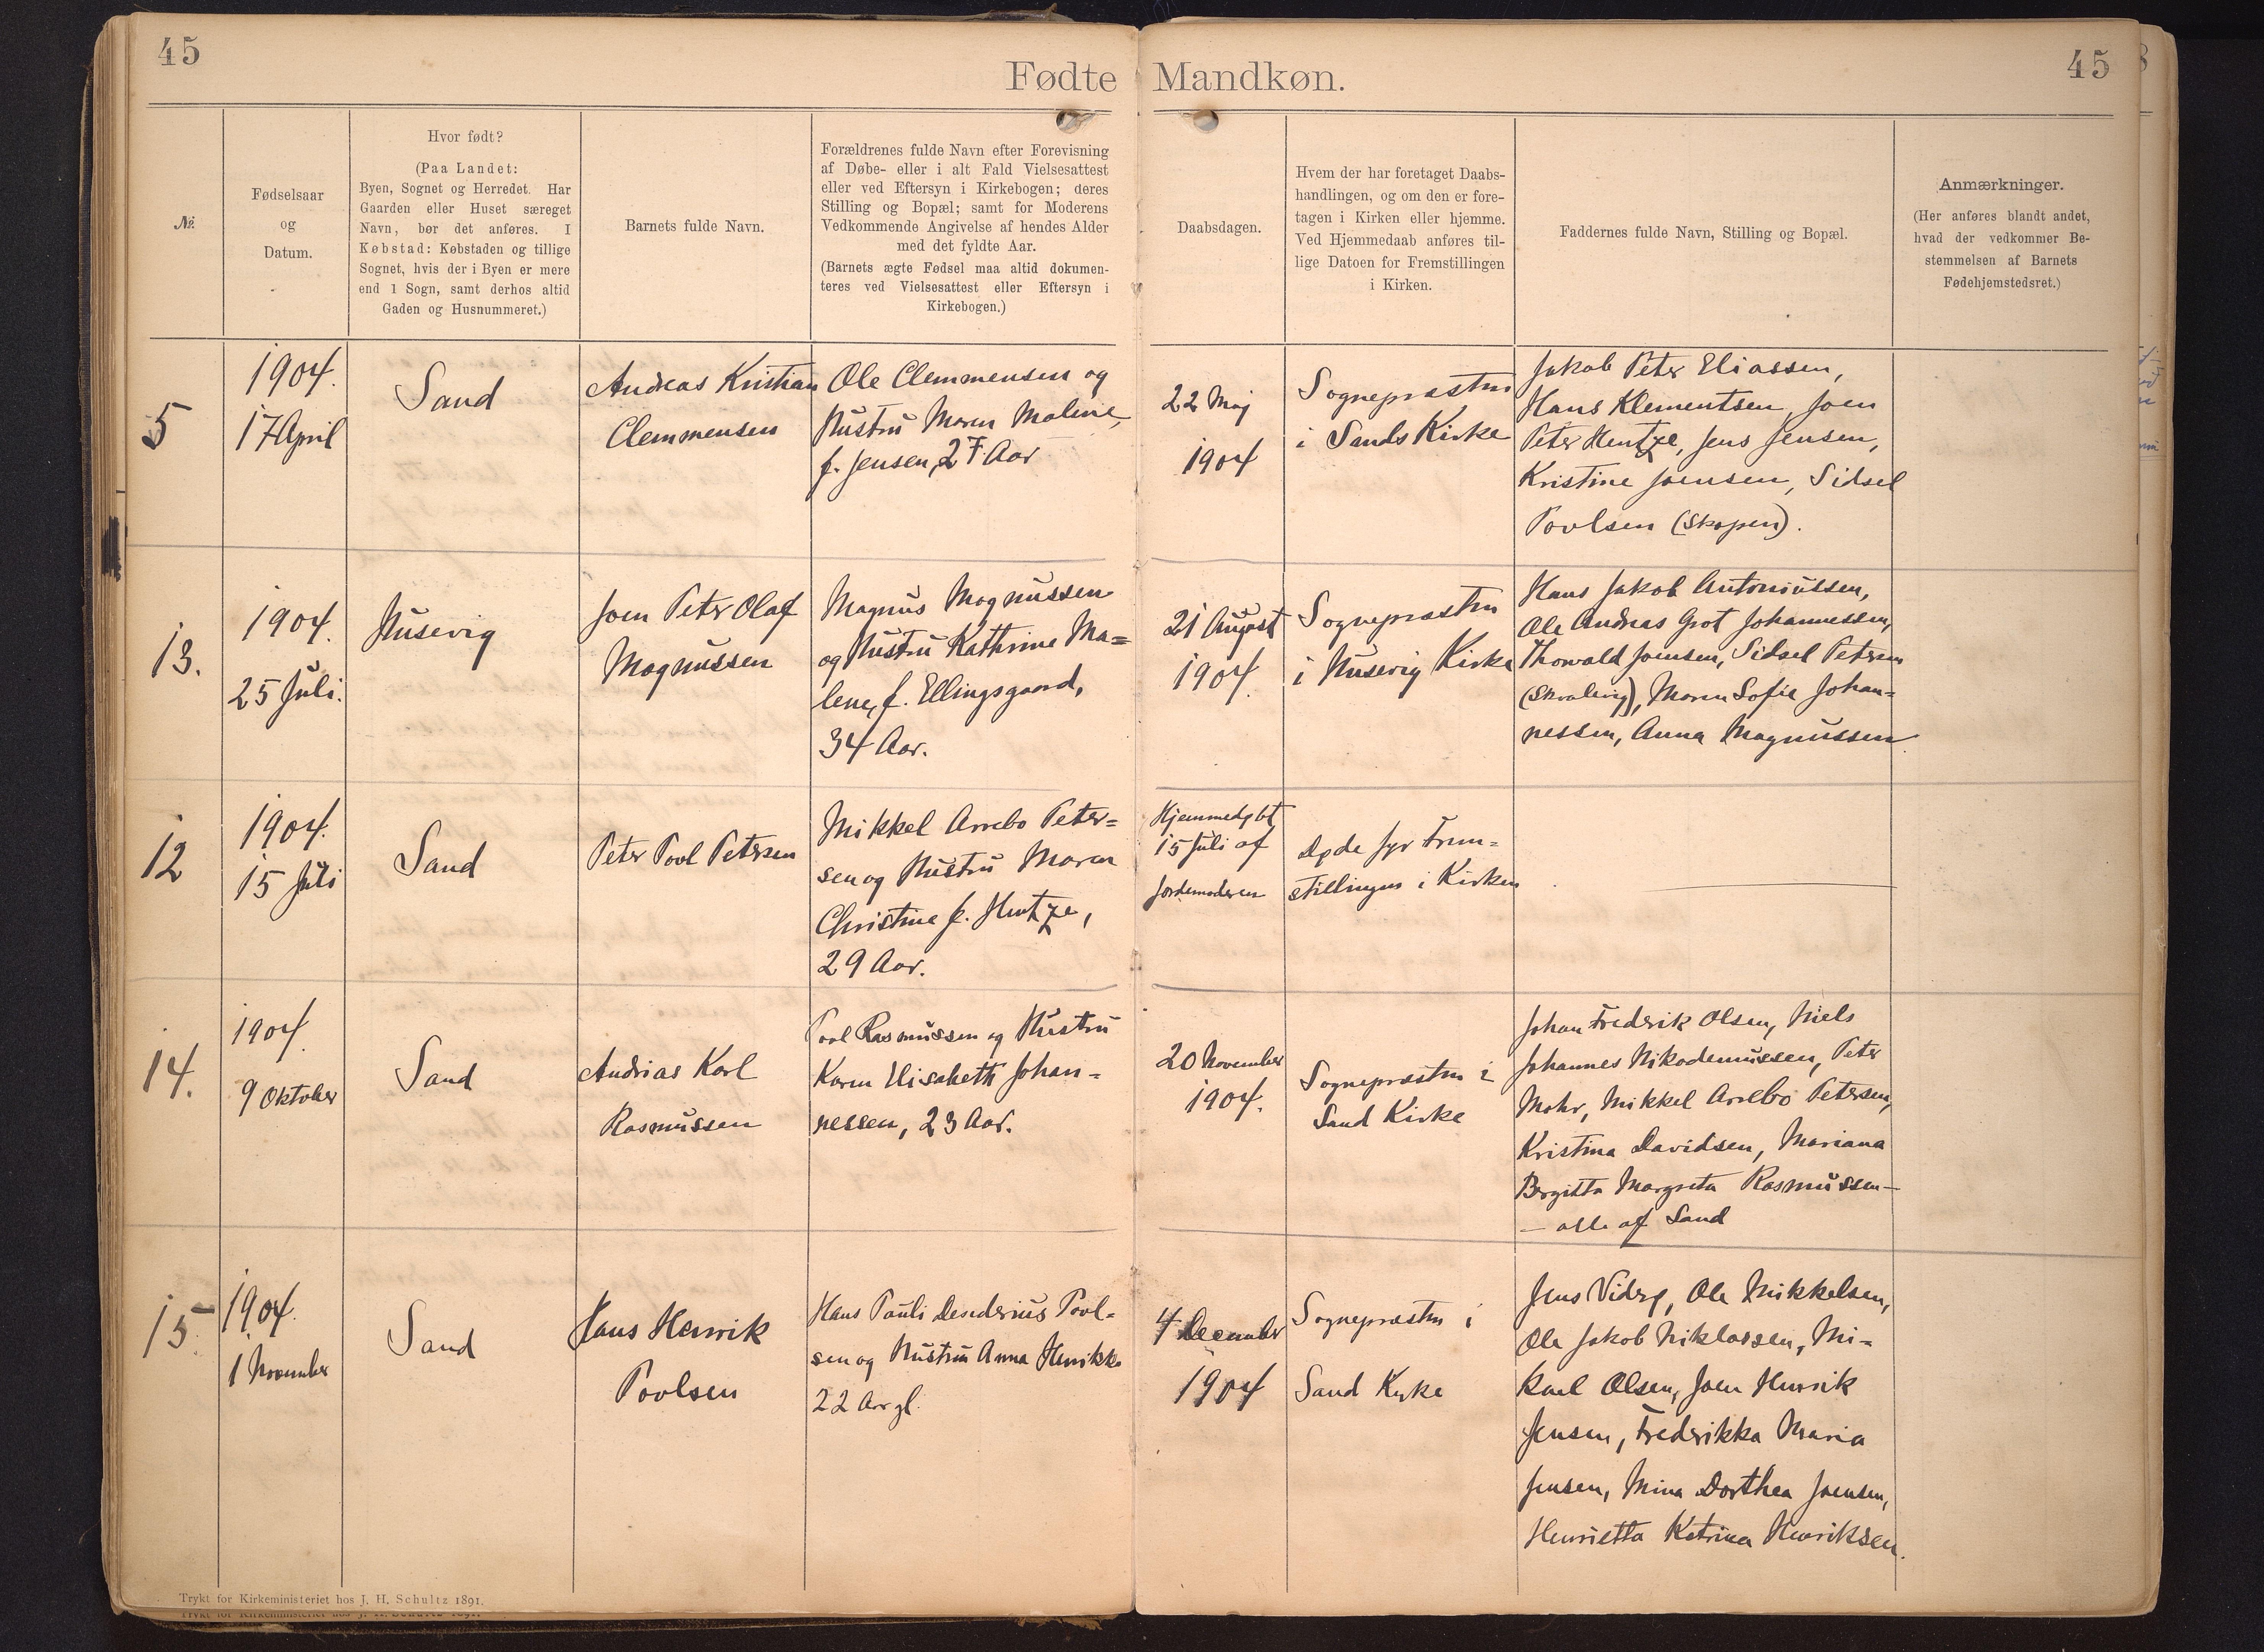 45
Fødte Mandkøn.
45
№.
Fødselsaar
og
Datum.
Hvor født?
(Paa Landet:
Byen, Sognet og Herredet. Har
Gaarden eller Huset særeget
Navn, bør det anføres. I
Købstad: Købstaden og tillige
Sognet, hvis der i Byen er mere
end 1 Sogn, samt derhos altid
Gaden og Husnummeret.)
Barnets fulde Navn.
Forældrenes fulde Navn efter Forevisning
af Døbe- eller i alt Fald Vielsesattest
eller ved Eftersyn i Kirkebogen; deres
Stilling og Bopæl; samt for Moderens
Vedkommende Angivelse af hendes Alder
med det fyldte Aar.
(Barnets ægte Fødsel maa altid dokumen-
teres ved Vielsesattest eller Eftersyn i
Kirkebogen.)
Daabsdagen.
Hvem der har foretaget Daabs-
handlingen, og om den er fore-
tagen i Kirken eller hjemme.
Ved Hjemmedaab anføres til-
lige Datoen for Fremstillingen
i Kirken.
Faddernes fulde Navn, Stilling og Bopæl.
Anmærkninger.
(Her anføres blandt andet,
hvad der vedkommer Be-
stemmelsen af Barnets
Fødehjemstedsret.)
5
1904.
17 April
Sand
Andreas Kristian
Clemmensen
Ole Clemmensen og
Hustru Maren Malene,
f. Jensen, 27 Aar
22 Maj
1904
Sognepræsten
i Sands Kirke
Jakob Peter Eliassen,
Hans Klementsen, Joen
Peter Hentze, Jens Jensen,
Kristine Joensen, Sidsel
Povlsen (Skopen).
13.
1904.
25 Juli.
Husevig
Joen Peter Olaf
Magnussen
Magnus Magnussen
og Hustru Kathrine Ma=
lene, f. Ellingsgaard,
34 Aar.
21 August
1904.
Sognepræsten
i Husevig Kirke
Hans Jakob Antoniussen,
Ole Andreas Grot Johannessen,
Thorvald Joensen, Sidsel Petersen
(Skralevig), Maren Sofie Johan=
nessen, Anna Magnussen.
12
1904.
15 Juli
Sand
Peter Povl Petersen
Mikkel Arrebo Peter=
sen og Hustru Maren
Christine f. Hentze,
29 Aar.
Hjemmedøbt
15 Juli af
Jordemoderen
Døde før Frem=
stillingen i Kirken
14.
1904.
9 Oktober
Sand
Andrias Karl
Rasmussen
Povl Rasmussen og Hustru
Karen Elisabeth Johan=
nessen, 23 Aar.
20 November
1904.
Sognepræsten i
Sand Kirke
Johan Frederik Olsen, Niels
Johannes Nikodemussen, Peter
Mohr, Mikkel Arrebo Petersen,
Kristina Davidsen, Mariana
Birgitta Margreta Rasmussen—
— alle af Sand
15.
1904.
1 November
Sand
Hans Henrik
Povlsen
Hans Pauli Desiderius Povl-
sen og Hustru Anna Henrikke
22 Aar gl.
4 December
1904
Sognepræsten i
Sand Kyrke
Jens Viderø, Ole Mikkelsen,
Ole Jakob Niklassen, Mi=
kael Olsen, Joen Henrik
Jensen, Frederikka Maria
Jensen, Mina Dorthea Joensen,
Henrietta Katrina Henriksen.
Trykt for Kirkeministeriet hos J. H. Schultz 1891.